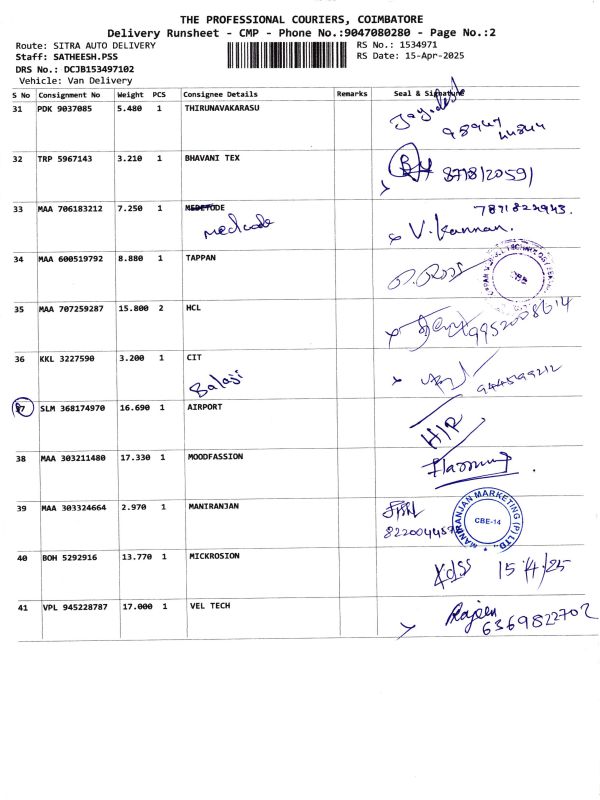 THE PROFESSIONAL COURIERS, COIMBATORE
Delivery Runsheet - CMP - Phone No.:9047080280 - Page No.:2
Route: SITRA AUTO DELIVERY RS No.: 1534971
Staff: SATHEESH.PSS RS Date: 15-Apr-2025
DRS No.: DCJB153497102
Vehicle: Van Delivery
S No Consignment No Weight PCS Consignee Details Remarks Seal & Signature
31 PDK 9037085 5.480 1 THIRUNAVAKARASU
98947
44844
32 TRP 5967143 3.210 1 BHAVANI TEX
8778120591
33 MAA 706183212 7.250 1 MEDETODE
medcode
V. Kannan.
34 MAA 600519792 8.880 1 TAPPAN
35 MAA 707259287 15.800 2 HCL
9952008614
36 KKL 3227590 3.200 1 CIT
Balaji
944599212
37 SLM 368174970 16.690 1 AIRPORT
H/R
38 MAA 303211480 17.330 1 MOODFASSION
39 MAA 303324664 2.970 1 MANIRANJAN
MANIRANJAN MARKETING (P) LTD.,
CBE-14
40 BOH 5292916 13.770 1 MICKROSION
15/4/25
41 VPL 945228787 17.000 1 VEL TECH
6369822702